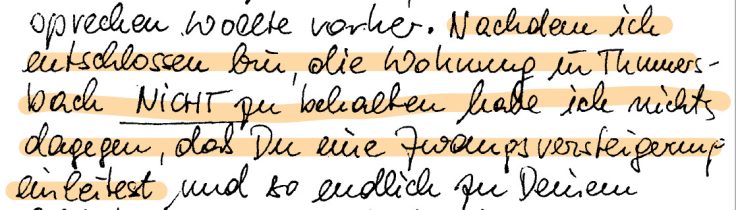 sprechen wollte vorher. Nachdem ich
entschlossen bin, die Wohnung in Thumers-
bach NICHT zu behalten habe ich nichts
dagegen, daß Du eine Zwangsversteigerung
einleitest und so endlich zu Deinem